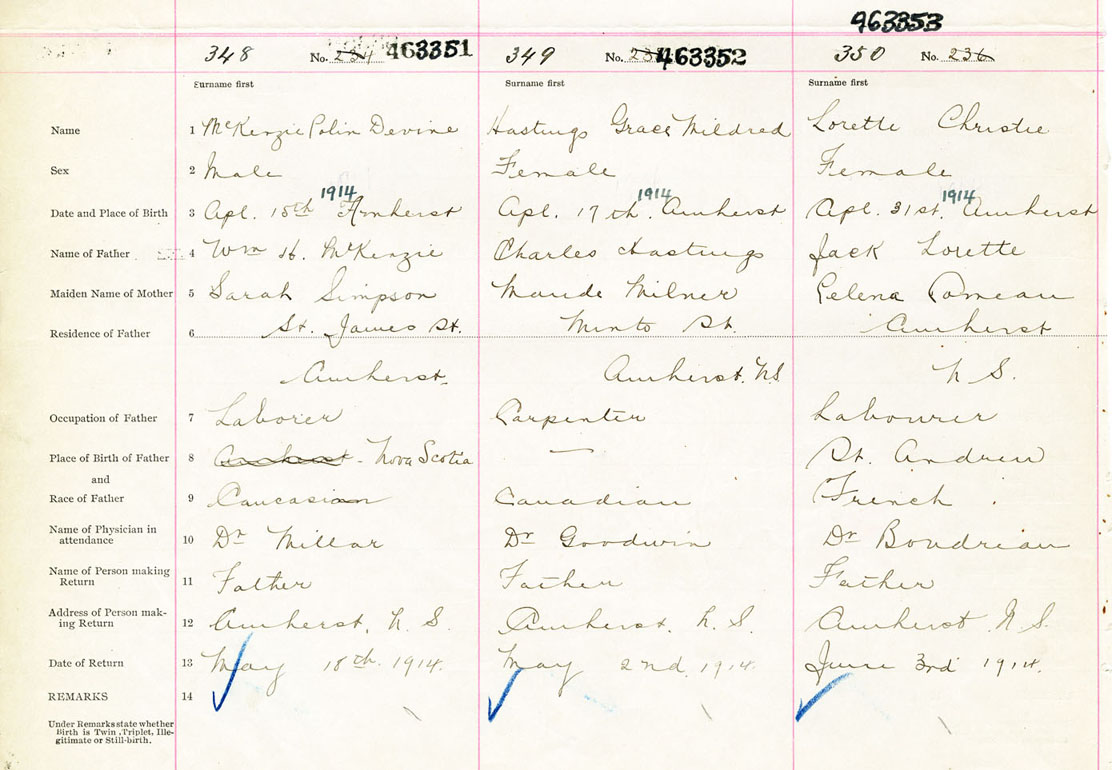 463353
348 No. 234 463351 349 No. 463352 350 No. 236
Surname first Surname first Surname first
Name 1 McKenzie Colin Devine Hastings Grace Mildred Lorette Christie
Sex 2 Male Female Female
1914 1914 1914
Date and Place of Birth 3 Apl. 15th Amherst Apl. 17th. Amherst Apl. 31st. Amherst
Name of Father 4 Wm H. McKenzie Charles Hastings Jack Lorette
Maiden Name of Mother 5 Sarah Simpson Maude Milner Celena Comeau
Residence of Father 6 St. James St. Minto St. Amherst
Amherst. Amherst. N.S. N S.
Occupation of Father 7 Laborer Carpenter Labourer
Place of Birth of Father 8 Amherst - Nova Scotia — St. Andrew
and
Race of Father 9 Caucasian Canadian French .
Name of Physician in
attendance 10 Dr Millar Dr Goodwin Dr Boudrieau
Name of Person making
Return 11 Father Father Father
Address of Person mak-
ing Return 12 Amherst, N. S. Amherst. N. S. Amherst N.S.
Date of Return 13 May 18th. 1914. May 2nd. 1914. June 3rd 1914.
REMARKS 14
Under Remarks state whether
Birth is Twin, Triplet, Ille-
gitimate or Still-birth.